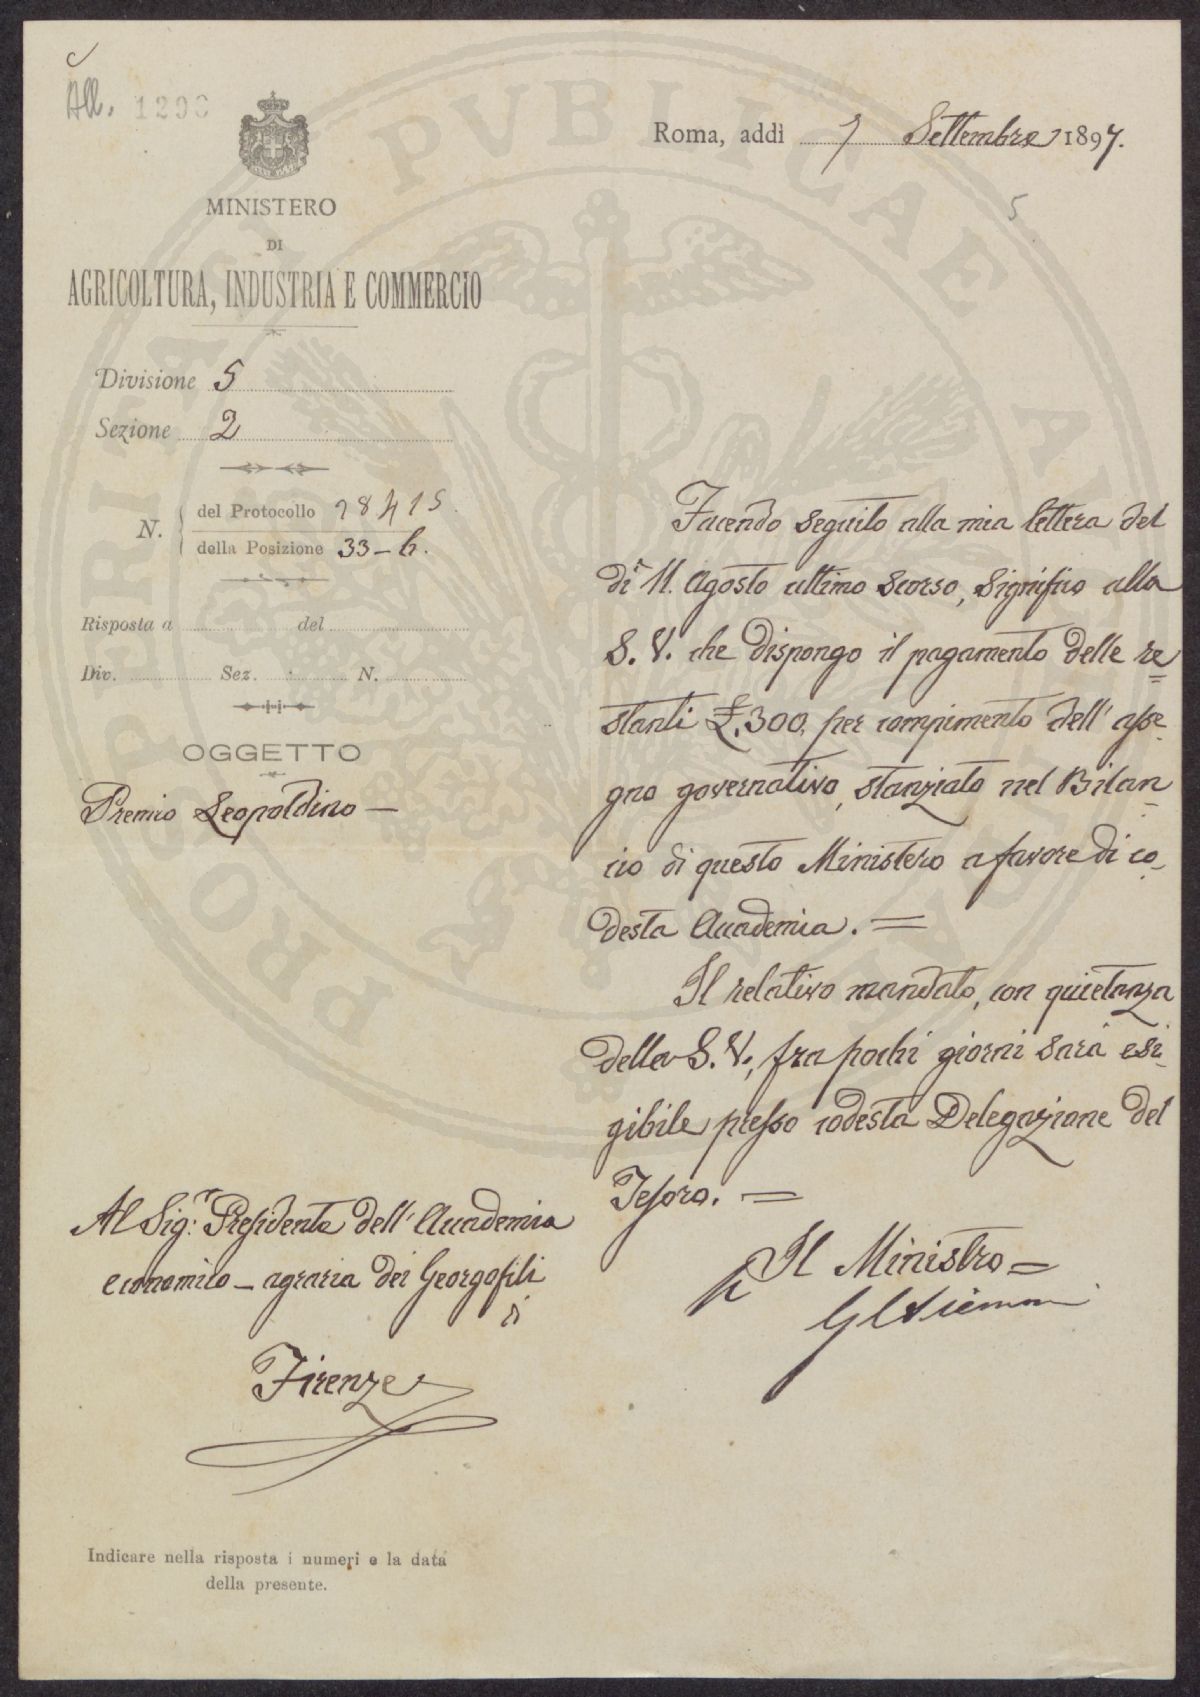 All. 1290
MINISTERO
DI
AGRICOLTURA, INDUSTRIA E COMMERCIO
Divisione 5
Sezione 2
N.
del Protocollo 28415
della Posizione 33-6.
Risposta a del
Div. Sez. N.
OGGETTO
Premio Leopoldino –
Roma, addì 7 Settembre 1897.
5
Facendo seguito alla mia lettera del
dì 11. Agosto ultimo scorso, significo alla
S. V. che dispongo il pagamento delle re=
stanti £. 300, per compimento dell' asse-
gno governativo, stanziato nel Bilan-
cio di questo Ministero a favore di co-
desta Accademia. =
Il relativo mandato, con quietanza
della S. V., fra pochi giorni sarà esi-
gibile presso codesta Delegazione del
Tesoro. =
Il Ministro =
Al Sig.r Presidente dell' Accademia
economico – agraria dei Georgofili
di
Firenze
Indicare nella risposta i numeri e la data
della presente.
PROSPERITATI PVBLICAE AVGENDAE